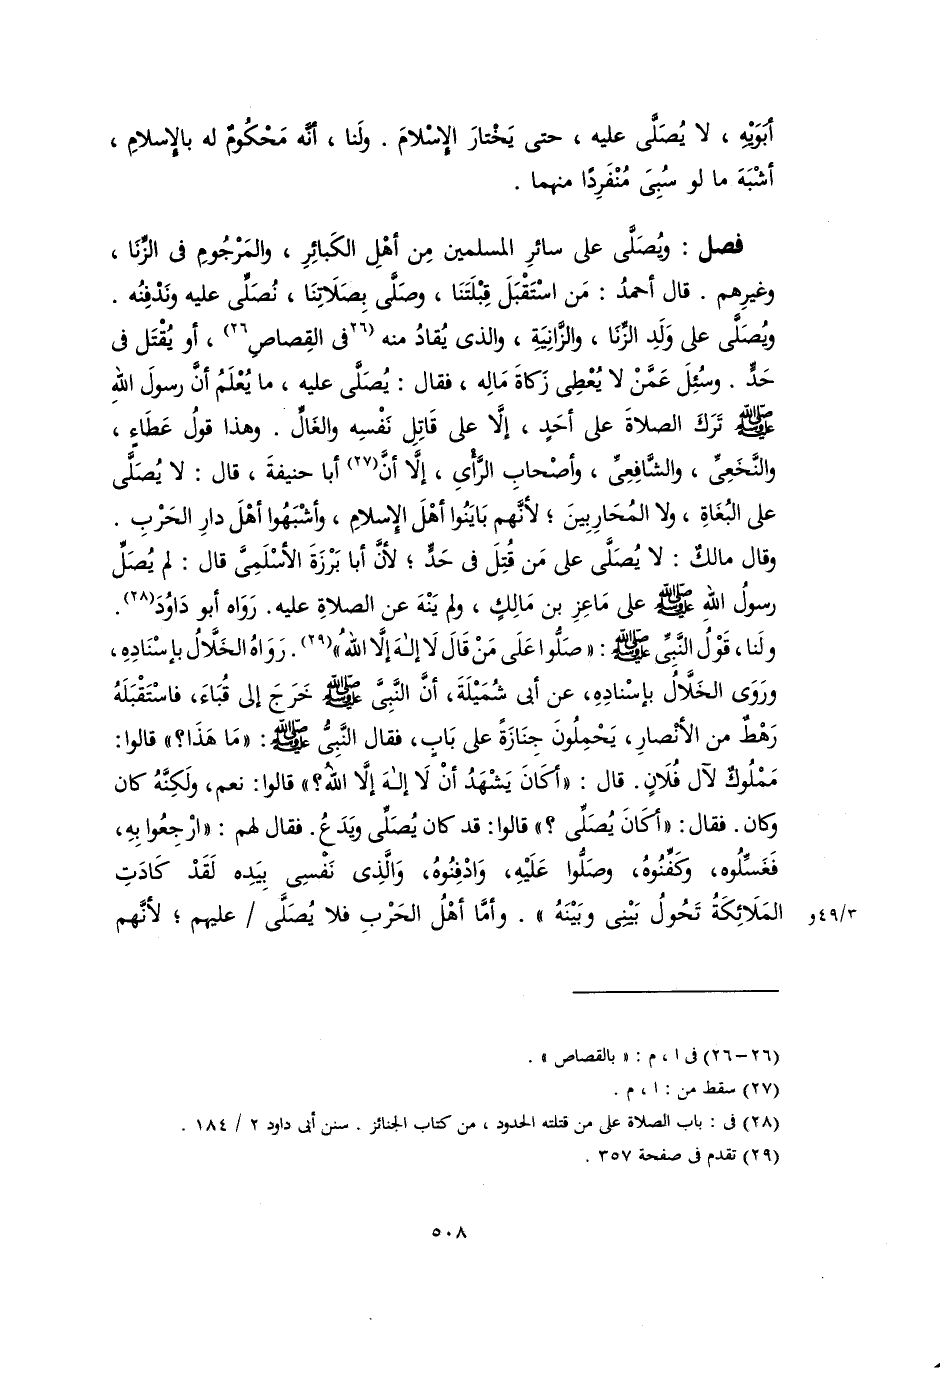 أبَوَيْهِ ، لا يُصَلَّى عليه ، حتى يَخْتارَ الإِسْلامَ . ولَنا ، أنَّه مَحْكُومٌ له بالإِسلامِ ،
أشْبَهَ ما لو سُبِىَ مُنْفَرِدًا منهما .
فصل : ويُصَلَّى على سائرِ المسلمين مِن أهْلِ الكَبائرِ ، والمَرْجُومِ فى الزِّنَا ،
وغيرِهم . قال أحمدُ : مَن اسْتَقْبَلَ قِبْلَتَنَا ، وصلَّى بِصَلَاتِنَا ، نُصَلِّى عليه ونَدْفِنُه .
ويُصَلَّى على وَلَدِ الزِّنَا ، والزَّانِيَةِ ، والذى يُقادُ منه (٢٦فى القِصاصِ٢٦) ، أو يُقْتَل فى
حَدٍّ . وسُئِلَ عَمَّنْ لا يُعْطِى زَكاةَ مَالِه ، فقال : يُصَلَّى عليه ، ما يُعْلَمُ أنَّ رسولَ اللهِ
ﷺ تَرَكَ الصلاةَ على أحَدٍ ، إلَّا على قَاتِلِ نَفْسِه والغَالِّ . وهذا قولُ عَطَاءٍ ،
والنَّخَعِىِّ ، والشَّافِعِىِّ ، وأصْحابِ الرَّأْىِ ، إلَّا أنَّ(٢٧) أبا حنيفةَ ، قال : لا يُصَلَّى
على البُغَاةِ ، ولا المُحَارِبِينَ ؛ لأنَّهم بَايَنُوا أهْلَ الإِسلامِ ، وأشْبَهُوا أهْلَ دارِ الحَرْبِ .
وقال مالكٌ : لا يُصَلَّى على مَن قُتِلَ فى حَدٍّ ؛ لأنَّ أبا بَرْزَةَ الأسْلَمِىَّ قال : لم يُصَلِّ
رسولُ اللهِ ﷺ على مَاعِزِ بن مَالِكٍ ، ولم يَنْهَ عن الصلاةِ عليه. رَوَاه أبو دَاوُدَ(٢٨).
ولَنا، قَوْلُ النَّبِىِّ ﷺ : « صَلُّوا عَلَى مَنْ قَالَ لَا إلـٰهَ إلَّا اللهُ»(٢٩). رَوَاهُ الخَلَّالُ بإسْنَادِهِ،
ورَوَى الخَلَّالُ بإسْنادِهِ، عن أبى شُمَيْلَةَ، أنَّ النَّبِىَّ ﷺ خَرَجَ إلى قُبَاءَ، فاسْتَقْبَلَهُ
رَهْطٌ من الأنْصارِ، يَحْمِلُونَ جِنَازَةً على بَابٍ، فقال النَّبِىُّ ﷺ : «مَا هَذَا؟» قالوا:
مَمْلُوكٌ لآل فُلَانٍ. قال : «أكَانَ يَشْهَدُ أنْ لَا إلـٰهَ إلَّا اللهُ؟» قالوا: نعم، ولَكِنَّهُ كان
وكان. فقال: «أكَانَ يُصَلِّى ؟» قالوا: قد كان يُصَلِّى ويَدَعُ. فقال لهم : «ارْجِعُوا بِهِ،
فَغَسِّلُوه، وكَفِّنُوهُ، وصَلُّوا عَلَيْهِ، وَادْفِنُوهُ، وَالَّذِى نَفْسِى بِيَدِه لَقَدْ كَادَتِ
المَلَائِكَةُ تَحُولُ بَيْنِى وبَيْنَهُ » . وأمَّا أهْلُ الحَرْبِ فلا يُصَلَّى / عليهم ؛ لأنَّهم
٤٩/٣و
(٢٦-٢٦) فى ا ، م : « بالقصاص » .
(٢٧) سقط من : ا ، م .
(٢٨) فى : باب الصلاة على من قتلته الحدود ، من كتاب الجنائز . سنن أبى داود ٢ / ١٨٤ .
(٢٩) تقدم فى صفحة ٣٥٧ .
٥٠٨